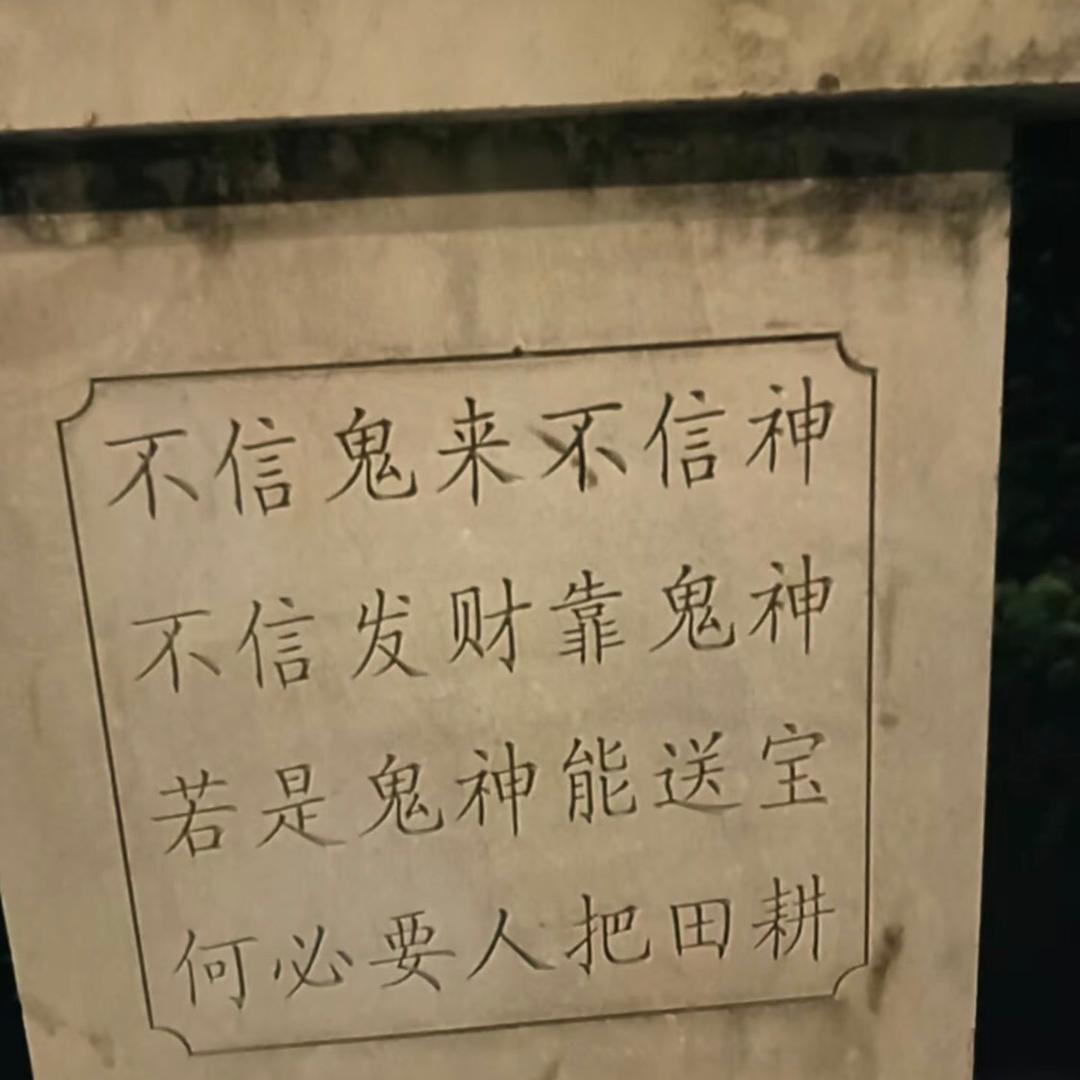 不信鬼来不信神
不信发财靠鬼神
若是鬼神能送宝
何必要人把田耕